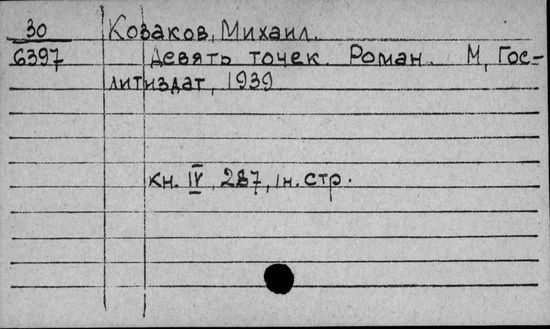 30 Козаков, Михаил.
6397 Девять точек. Роман. М, Гос-
литиздат, 1939
кн. IV, 287, 1н. стр.